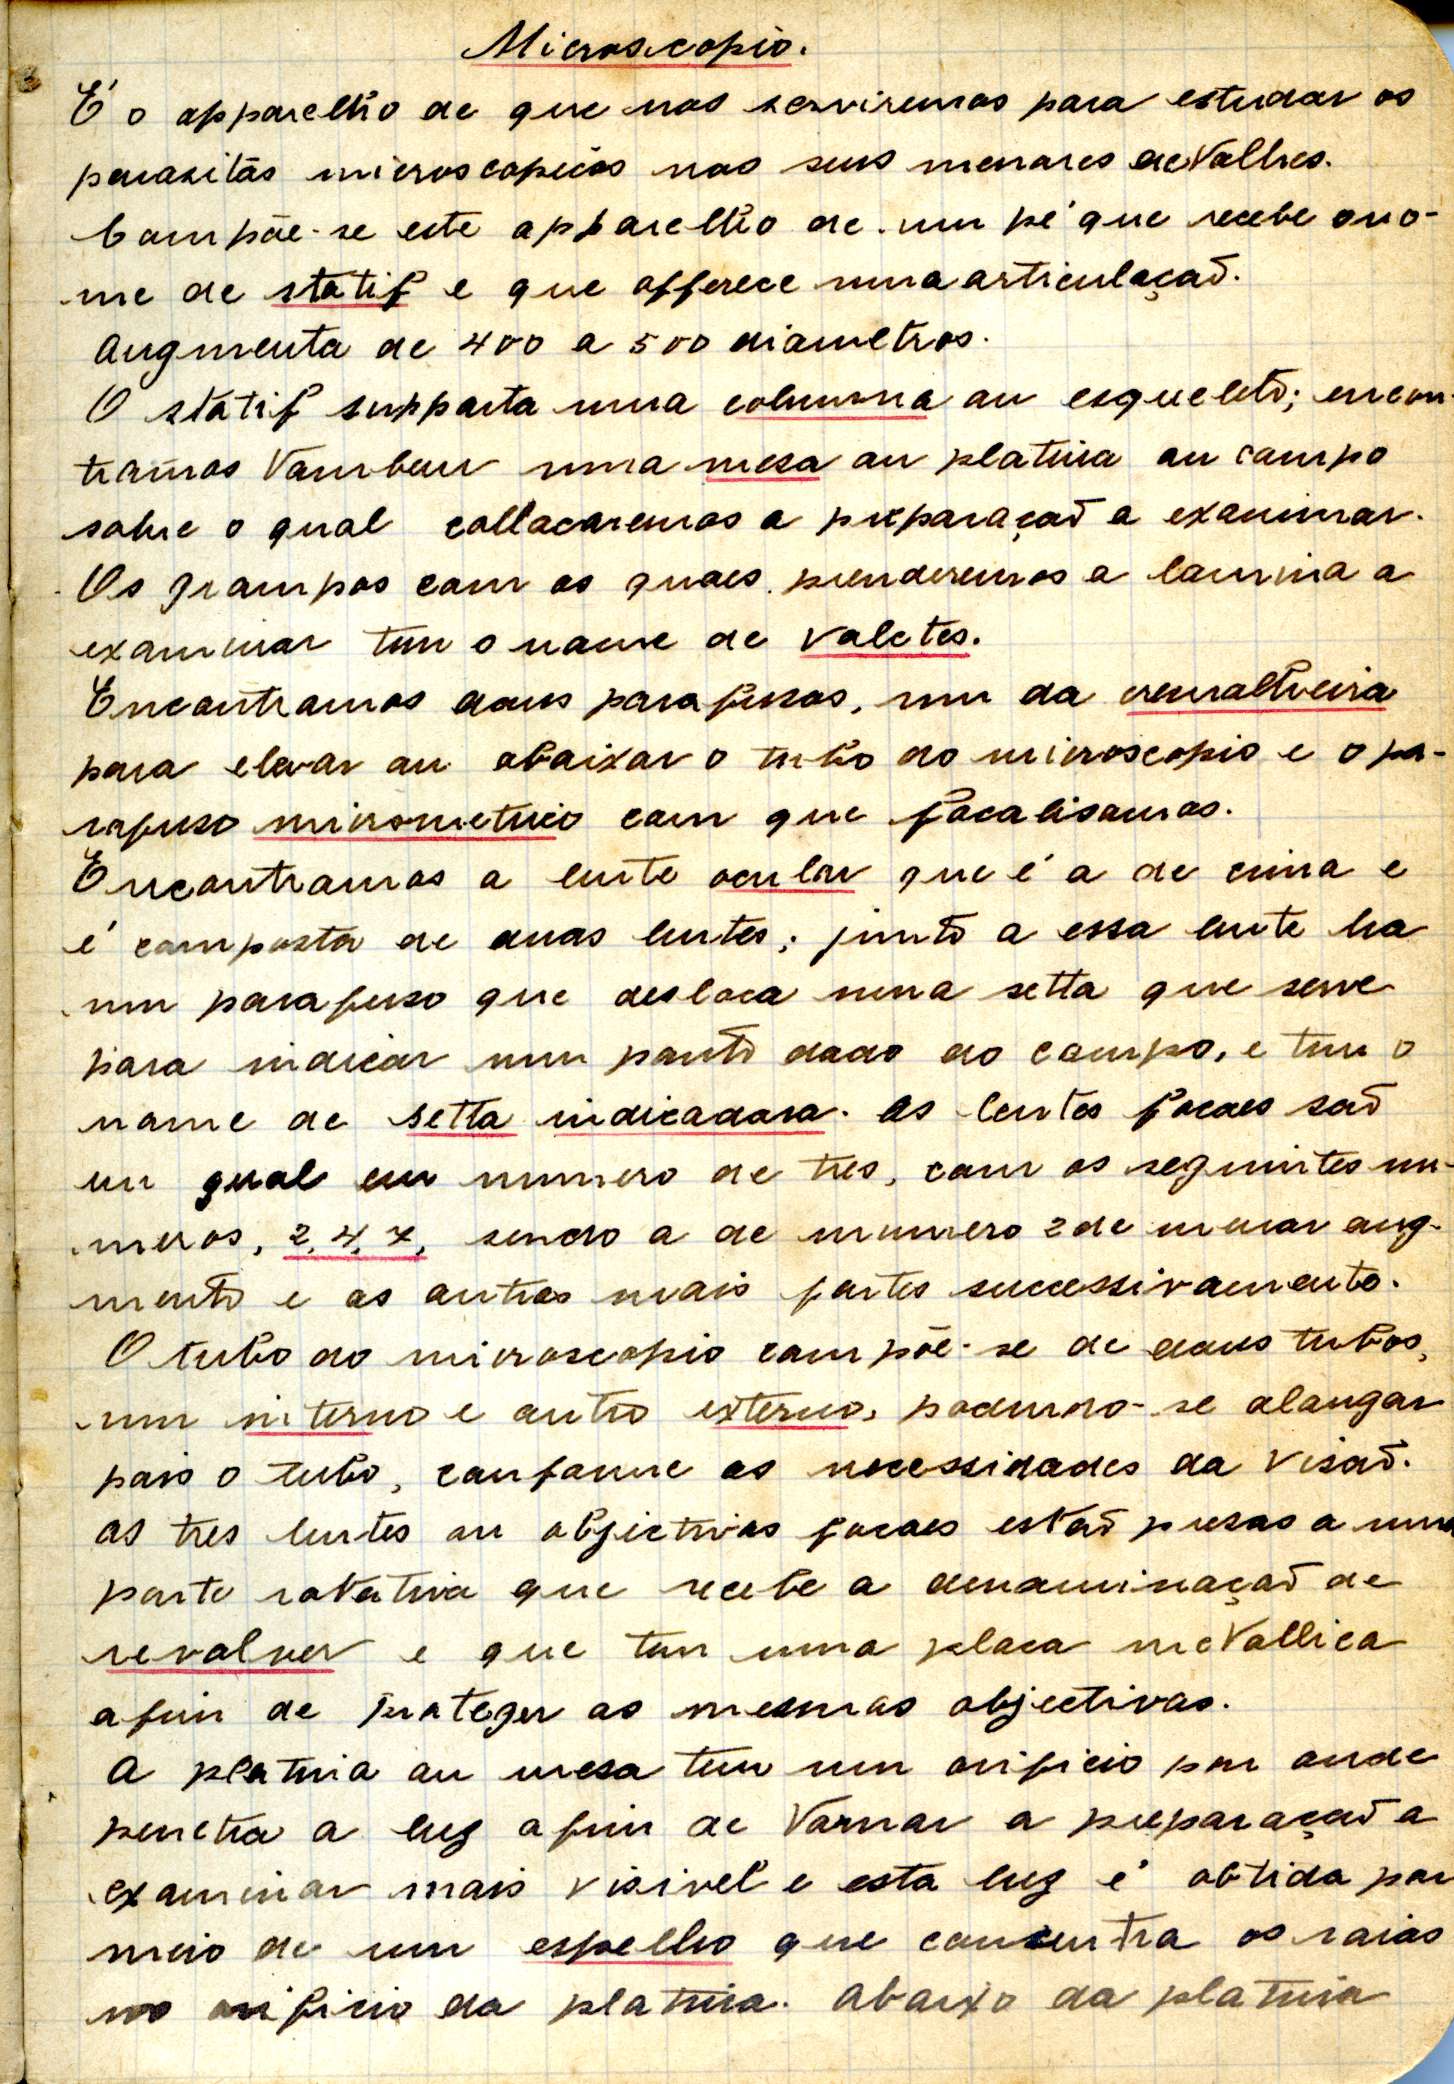 Microscopio.
É o apparelho de que nos serviremos para estudar os
parasitas microscopicos nos seus menores detalhes.
Compõe-se este apparelho de um pé que recebe o no-
me de statif e que offerece uma articulação.
Augmenta de 400 a 500 diametros.
O statif supporta uma columna ou esqueleto; encon-
tramos tambem uma mesa ou platina ou campo
sobre o qual collocaremos a preparação a examinar.
Os grampos com os quaes prenderemos a lamina a
examinar tem o nome de valetes.
Encontramos dous parafusos, um da cremalheira
para elevar ou abaixar o tubo do microscopio e o pa-
rafuso micrometrico com que focalisamos.
Encontramos a lente ocular que é a de cima e
é composta de duas lentes; junto a essa lente ha
um parafuso que desloca uma setta que serve
para indicar um ponto dado do campo, e tem o
nome de setta indicadora. As lentes focaes são
em geral em numero de tres, com os seguintes nu-
meros, 2, 4, 7, sendo a de numero 2 de menor aug-
mento e as outras mais fortes successivamente.
O tubo do microscopio compõe-se de dous tubos,
um interno e outro externo, podendo-se alongar
pois o tubo, conforme as necessidades da visão.
As tres lentes ou objectivas focaes estão presas a uma
parte rotativa que recebe a denominação de
revolver e que tem uma placa metallica
afim de proteger as mesmas objectivas.
A platina ou mesa tem um orificio por onde
penetra a luz afim de tornar a preparação a
examinar mais visivel e esta luz é obtida por
meio de um espelho que concentra os raios
no orificio da platina. Abaixo da platina